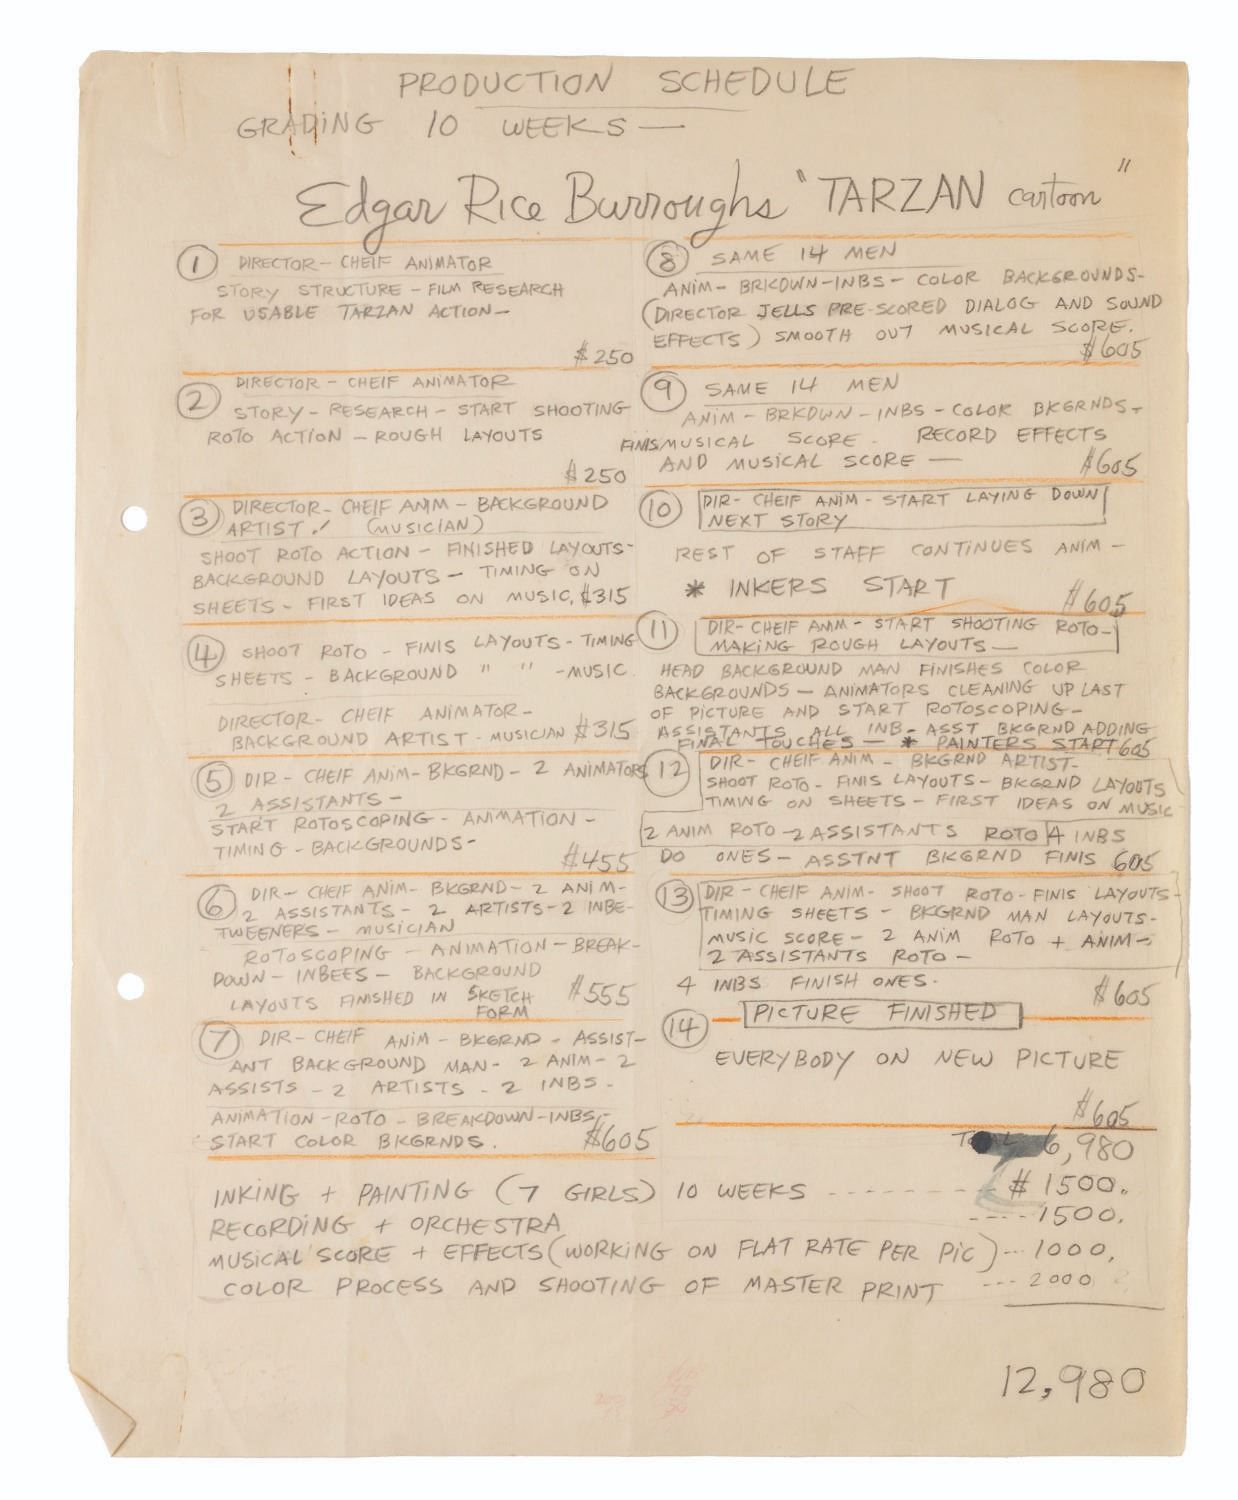 PRODUCTION SCHEDULE
GRADING 10 WEEKS —
Edgar Rice Burroughs "TARZAN cartoon"
① DIRECTOR - CHEIF ANIMATOR
STORY STRUCTURE - FILM RESEARCH
FOR USABLE TARZAN ACTION -
$250
② DIRECTOR - CHEIF ANIMATOR
STORY - RESEARCH - START SHOOTING
ROTO ACTION - ROUGH LAYOUTS
$250
③ DIRECTOR - CHEIF ANIM - BACKGROUND
ARTIST! (MUSICIAN)
SHOOT ROTO ACTION - FINISHED LAYOUTS -
BACKGROUND LAYOUTS - TIMING ON
SHEETS - FIRST IDEAS ON MUSIC. $315
④ SHOOT ROTO - FINIS LAYOUTS - TIMING
SHEETS - BACKGROUND " " - MUSIC.
DIRECTOR - CHEIF ANIMATOR -
BACKGROUND ARTIST - MUSICIAN $315
⑤ DIR - CHEIF ANIM - BKGRND - 2 ANIMATORS
2 ASSISTANTS -
START ROTOSCOPING - ANIMATION -
TIMING - BACKGROUNDS -
$455
⑥ DIR - CHEIF ANIM - BKGRND - 2 ANIM -
2 ASSISTANTS - 2 ARTISTS - 2 INBE-
TWEENERS - MUSICIAN
ROTOSCOPING - ANIMATION - BREAK-
DOWN - INBEES - BACKGROUND
LAYOUTS FINISHED IN SKETCH FORM $555
⑦ DIR - CHEIF ANIM - BKGRND - ASSIST-
ANT BACKGROUND MAN - 2 ANIM - 2
ASSISTS - 2 ARTISTS - 2 INBS -
ANIMATION - ROTO - BREAKDOWN - INBS, -
START COLOR BKGRNDS. $605
⑧ SAME 14 MEN
ANIM - BRKDWN - INBS - COLOR BACKGROUNDS -
(DIRECTOR JELLS PRE-SCORED DIALOG AND SOUND
EFFECTS) SMOOTH OUT MUSICAL SCORE.
$605
⑨ SAME 14 MEN
ANIM - BRKDWN - INBS - COLOR BKGRNDS -
FINIS MUSICAL SCORE - RECORD EFFECTS
AND MUSICAL SCORE — $605
⑩ DIR - CHEIF ANIM - START LAYING DOWN
NEXT STORY
REST OF STAFF CONTINUES ANIM -
* INKERS START
$605
⑪ DIR - CHEIF ANIM - START SHOOTING ROTO -
MAKING ROUGH LAYOUTS —
HEAD BACKGROUND MAN FINISHES COLOR
BACKGROUNDS - ANIMATORS CLEANING UP LAST
OF PICTURE AND START ROTOSCOPING -
ASSISTANTS ALL INB - ASST BKGRND ADDING
FINAL TOUCHES - * PAINTERS START 605
⑫ DIR - CHEIF ANIM - BKGRND ARTIST -
SHOOT ROTO - FINIS LAYOUTS - BKGRND LAYOUTS
TIMING ON SHEETS - FIRST IDEAS ON MUSIC
2 ANIM ROTO - 2 ASSISTANTS ROTO 4 INBS
DO ONES - ASSTNT BKGRND FINIS 605
⑬ DIR - CHEIF ANIM - SHOOT ROTO - FINIS LAYOUTS -
TIMING SHEETS - BKGRND MAN LAYOUTS -
MUSIC SCORE - 2 ANIM ROTO + ANIM -
2 ASSISTANTS ROTO -
4 INBS FINISH ONES.
$605
⑭ PICTURE FINISHED
EVERYBODY ON NEW PICTURE
$605
TOTAL 6,980
INKING + PAINTING (7 GIRLS) 10 WEEKS -------- $1500.
RECORDING + ORCHESTRA ---- 1500.
MUSICAL SCORE + EFFECTS (WORKING ON FLAT RATE PER PIC) --- 1000.
COLOR PROCESS AND SHOOTING OF MASTER PRINT --- 2000
12,980